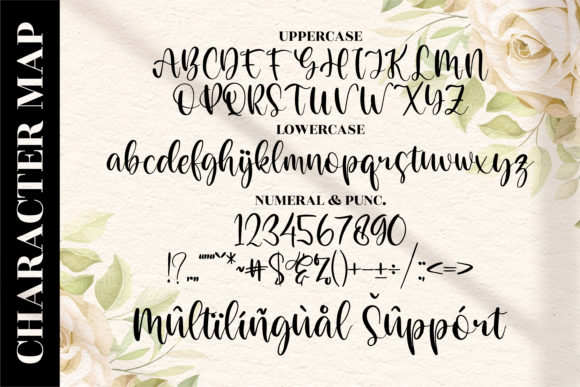 CHARACTER MAP
UPPERCASE
ABCDEFGHIJKLMN
OPQRSTUVWXYZ
LOWERCASE
abcdefghijklmnopqrstuvwxyz
NUMERAL & PUNC.
1234567890
!?..,,"""^*~#$&%()+-±÷/:;<=>
Mûltïlíñgùål Šûppórt